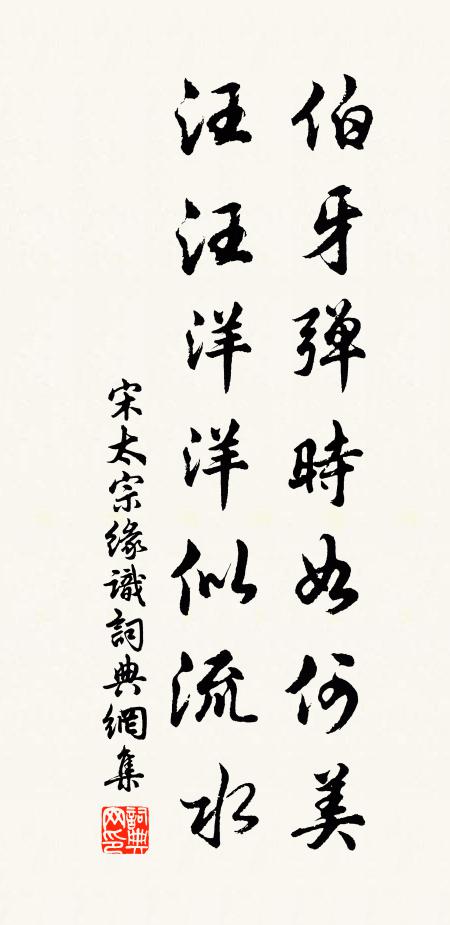 伯牙弹時如何美
汪汪洋洋似流水
宋太宗緣識詞典網集
詞典網印